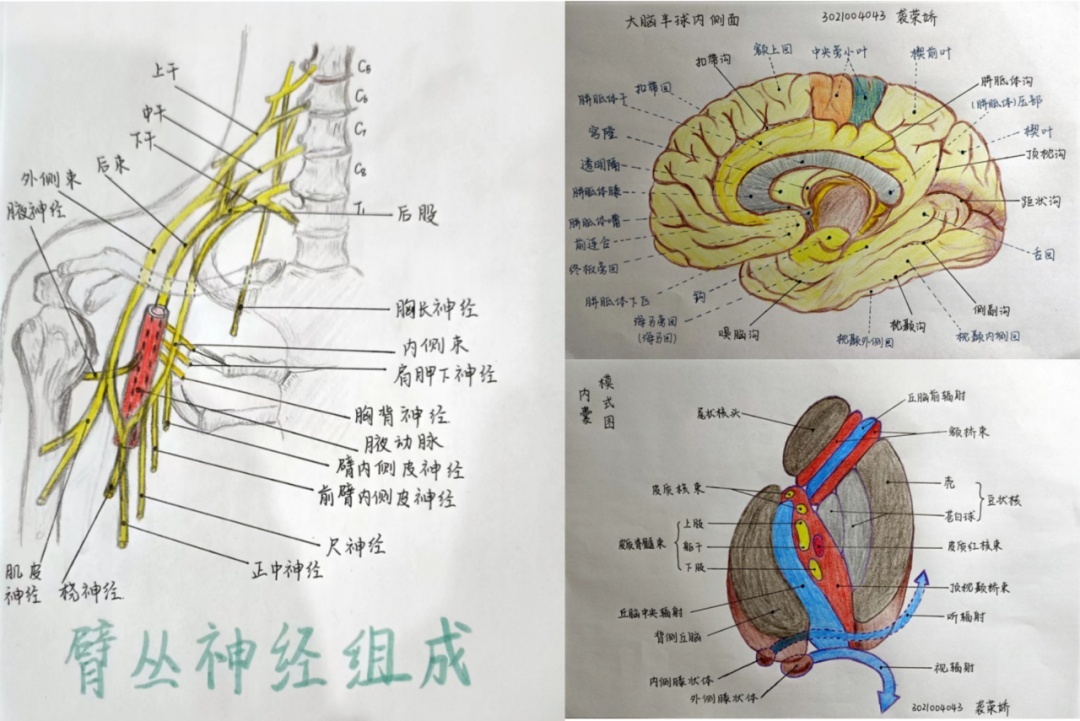 上干
中干
下干
后束
外侧束
腋神经
C₅
C₆
C₇
C₈
T₁
后股
胸长神经
内侧束
肩胛下神经
胸背神经
腋动脉
臂内侧皮神经
前臂内侧皮神经
尺神经
正中神经
桡神经
肌皮
神经
臂丛神经组成
大脑半球内侧面
3021004043 裘荣娇
扣带沟
额上回
中央旁小叶
楔前叶
胼胝体沟
(胼胝体)压部
楔叶
顶枕沟
距状沟
舌回
侧副沟
枕颞内侧回
枕颞沟
枕颞外侧回
嗅脑沟
钩
海马旁回
(海马回)
胼胝体下区
终板旁回
前连合
胼胝体嘴
胼胝体膝
透明隔
穹隆
胼胝体干
扣带回
内囊
模式图
尾状核头
丘脑前辐射
额桥束
壳
豆状核
苍白球
皮质核束
皮质红核束
上肢
皮质脊髓束
躯干
下肢
顶枕颞桥束
丘脑中央辐射
听辐射
背侧丘脑
视辐射
内侧膝状体
外侧膝状体
3021004043 裘荣娇